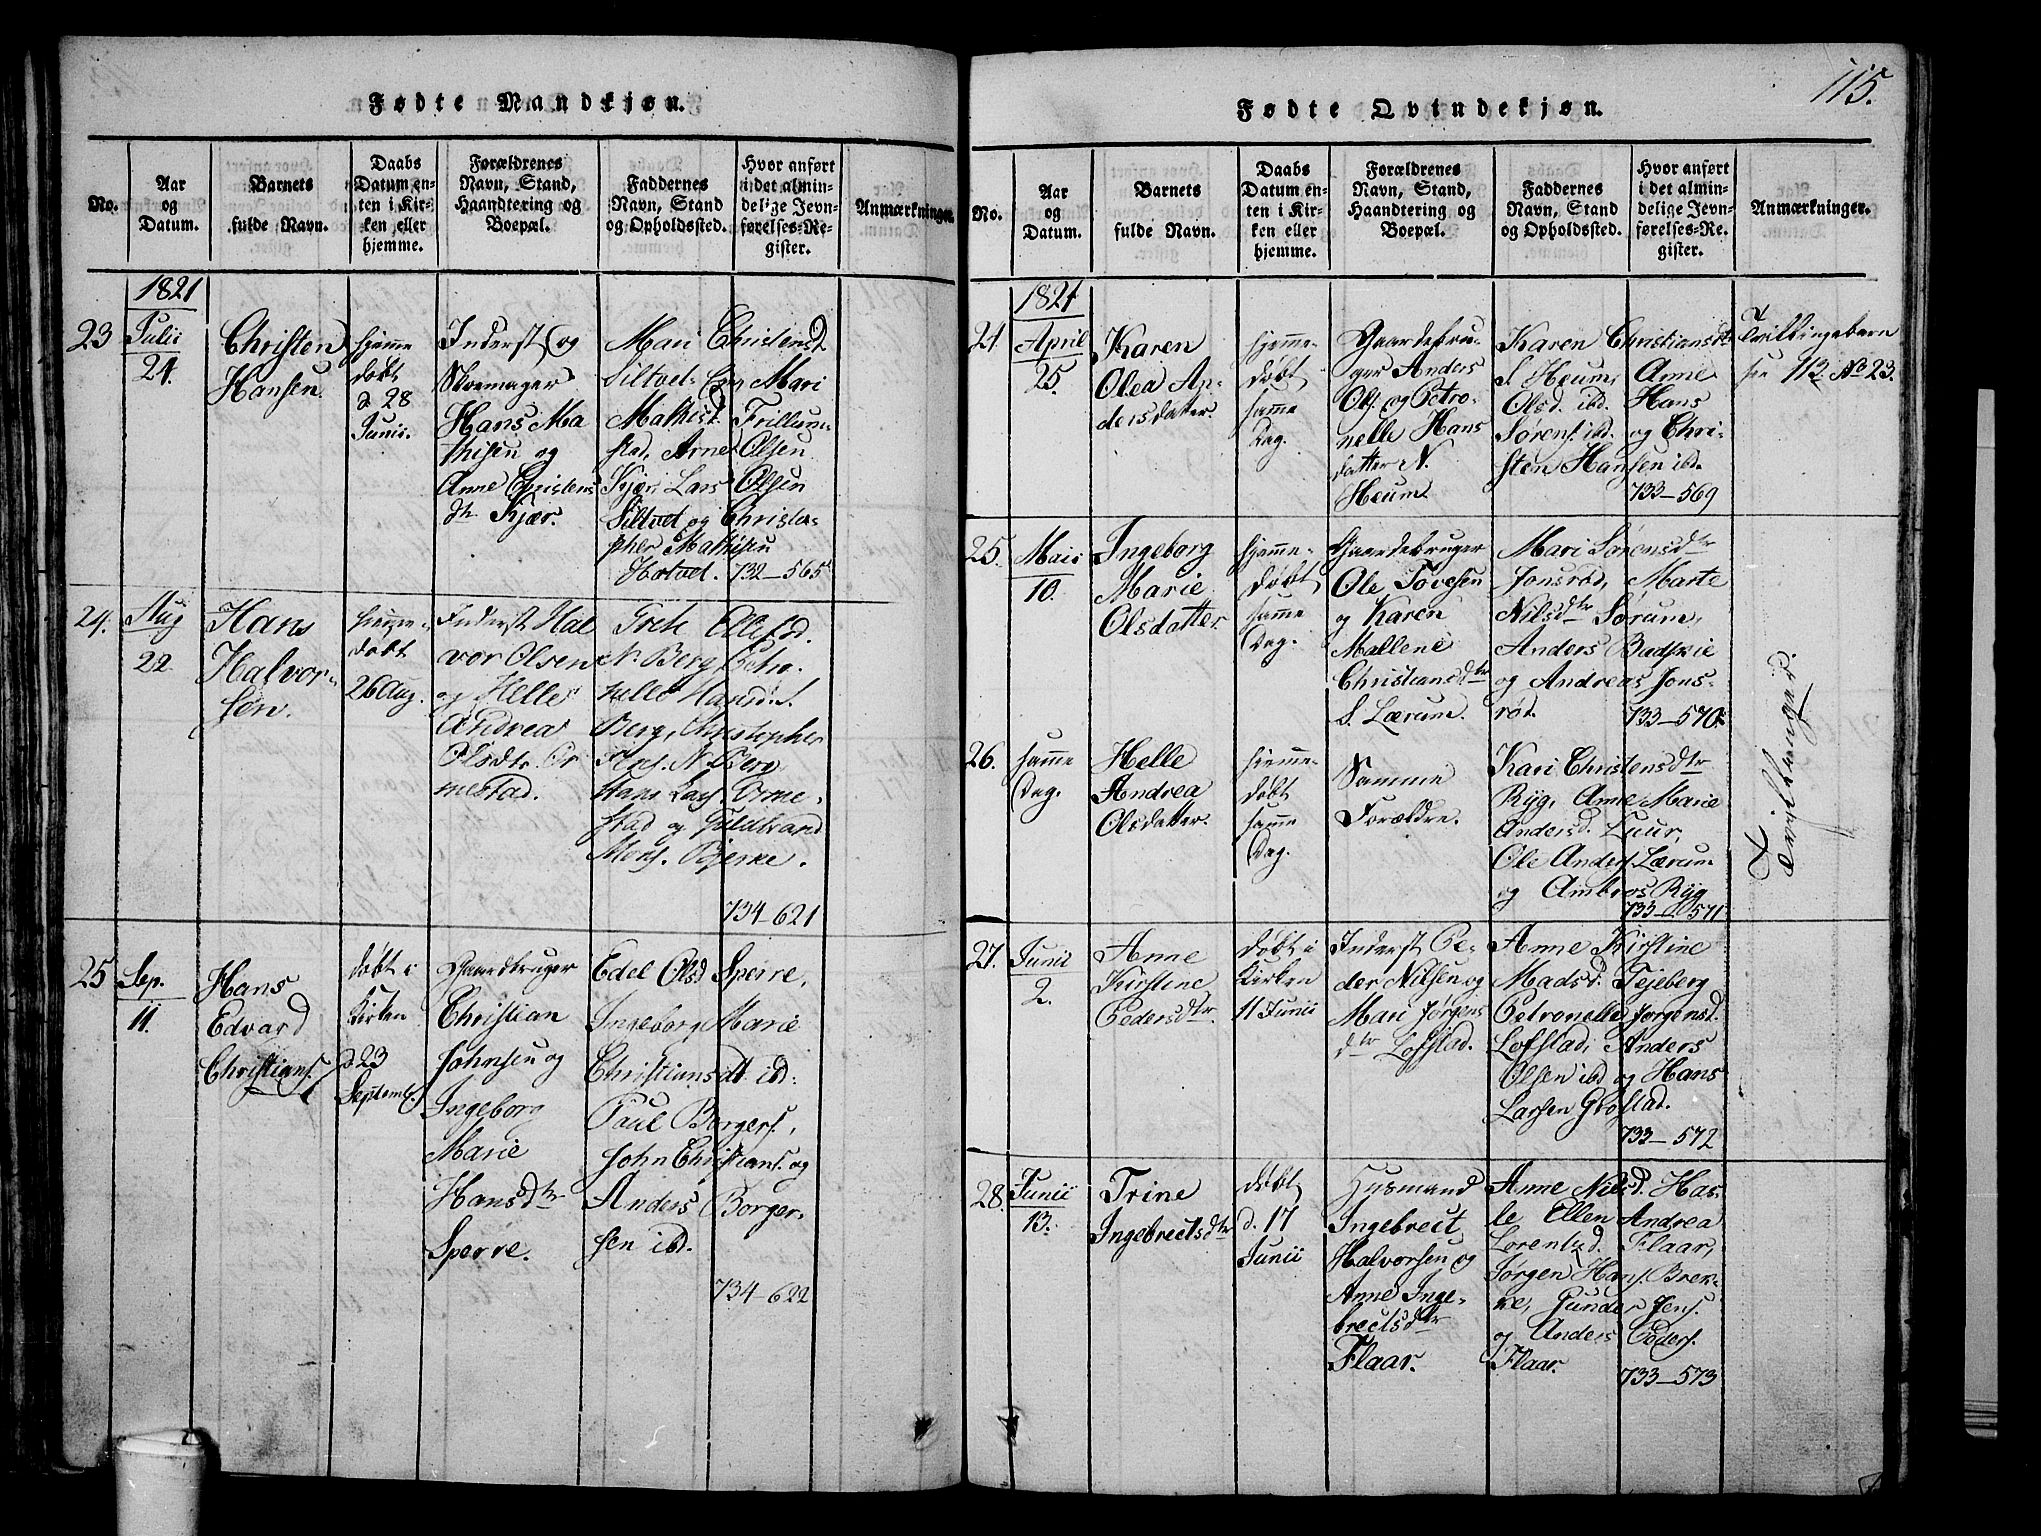 Fødte Mandkjøn.
No.
Aar
og
Datum.
Barnets
fulde Navn.
Daabs
Datum en-
ten i Kir-
ken eller
hjemme.
Forældrenes
Navn, Stand,
Haandtering og
Boepæl.
Faddernes
Navn, Stand
og Opholdssted.
Hvor anført
i det almin-
delige Jevn-
førelses-Re-
gister.
Anmærkninger.
1821
23
Julii
24.
Christen
Hansen.
hjemme
døbt
d 28
Junii.
Inderst og
Skoemager
Hans Ma
thisen og
Anne Christens
dtr Kjær.
Mari Christensd.
Siltvet, Mari
Mathisd. Trillum-
stad, Arne Olsen
Kjær, Lars Olsen
Siltvet og Christo-
pher Mathisen
Hotvet. 732-565
24.
Aug
22
Hans
Halvor-
sen.
hjemme-
døbt
26 Aug.
Inderst Hal
vor Olsen
og Helle
Andrea
Olsdtr. Or
mestad.
N. Berg,
Berg, Christopher
N. Berg
Hans Lars. Orme-
stad og Guldbrand
Mons. Bjerke.
734-621
25
Sep.
11.
Hans
Edvard
Christians.
døbt i
Kirken
d 23
Septemb.
Gaardbruger
Christian
Johnsen og
Ingeborg
Marie
Hansdtr
Sperre.
Edel Olsd Sperre,
Ingeborg Marie
Christiansdt. ibd.
Paul Borgers.,
John Christians. og
Anders Borger-
sen ibd.
734-622
115.
Fødte Qvindekjøn.
No.
Aar
og
Datum.
Barnets
fulde Navn.
Daabs
Datum en-
ten i Kir-
ken eller
hjemme.
Forældrenes
Navn, Stand,
Haandtering og
Boepæl.
Faddernes
Navn, Stand
og Opholdssted.
Hvor anført
i det almin-
delige Jevn-
førelses-Re-
gister.
Anmærkninger.
1821
24.
April
25.
Karen
Olea An-
dersdatter
hjemme-
døbt
samme
Dag.
Gaardebru-
ger Anders
Ols. og Petro-
nelle Hans
datter N.
Heum.
Karen Christiansdtr
S. Heum, Anne
Olsd. ibd. Hans
Sørens. ibd. og Chri-
sten Hansen ibd.
733-569
Tvillingebarn
see 113 No 23.
25.
Maii
10.
Ingeborg
Marie
Olsdatter
hjemme-
døbt
samme
Dag.
Gaardebruger
Ole Tovesen
og Karen
Mallene
Christiansdtr
S. Lærum.
Mari Sørensdtr
Jonsrød, Marte
Nilsdtr Sørum,
Anders Badskie
og Andreas Jons-
rød. 733-570.
26.
samme
Dag.
Helle
Andrea
Olsdatter.
hjemme-
døbt
samme
Dag.
Samme
Forældre.
Kari Christensdtr
Ryg, Anne Marie
Andersd. Luur,
Ole Anders. Lærum
og Ambros Ryg
733-571
Tvillinger.
27.
Junii
2.
Anne
Kirstine
Pedersdtr.
døbt i
Kirken
11 Junii
Inderst Pe-
der Nilsen og
Mari Jørgens
dtr Lofstad.
Anne Kirstine
Madsd. Tejeberg
Petronelle Jørgensd.
Lofstad, Anders
Olsen ibd og Hans
Larsen Grostad.
733-572
28.
Junii
13.
Trine
Ingebrectsdtr
døbt
d. 17
Junii
Husmand
Ingebrect
Halvorsen og
Anne Inge-
brectsdtr
Flaar.
Anne Nilsd. Has-
le, Ellen Andrea
Lorentzd. Flaar,
Jørgen Hans. Brek-
ke, Gunder Jens.
og Anders Peders.
Flaar.
733-573